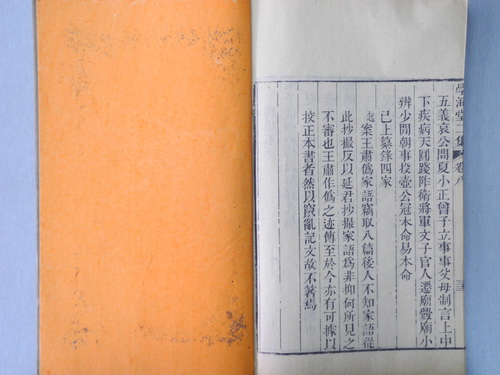 學海堂二集 卷八
五義哀公問夏小正曾子立事事父母制言上中
下疾病天圓踐阼衛將軍文子官人遷廟釁廟小
辨少閒朝事投壺公冠本命易本命
已上纂錄四家
案王肅僞家語竊取八篇後人不知家語從
此抄撮反以延君抄撮家語爲非抑何所見之
不審也王肅作僞之迹傳至於今亦有可據以
挍正本書者然以竄亂記文故不著焉